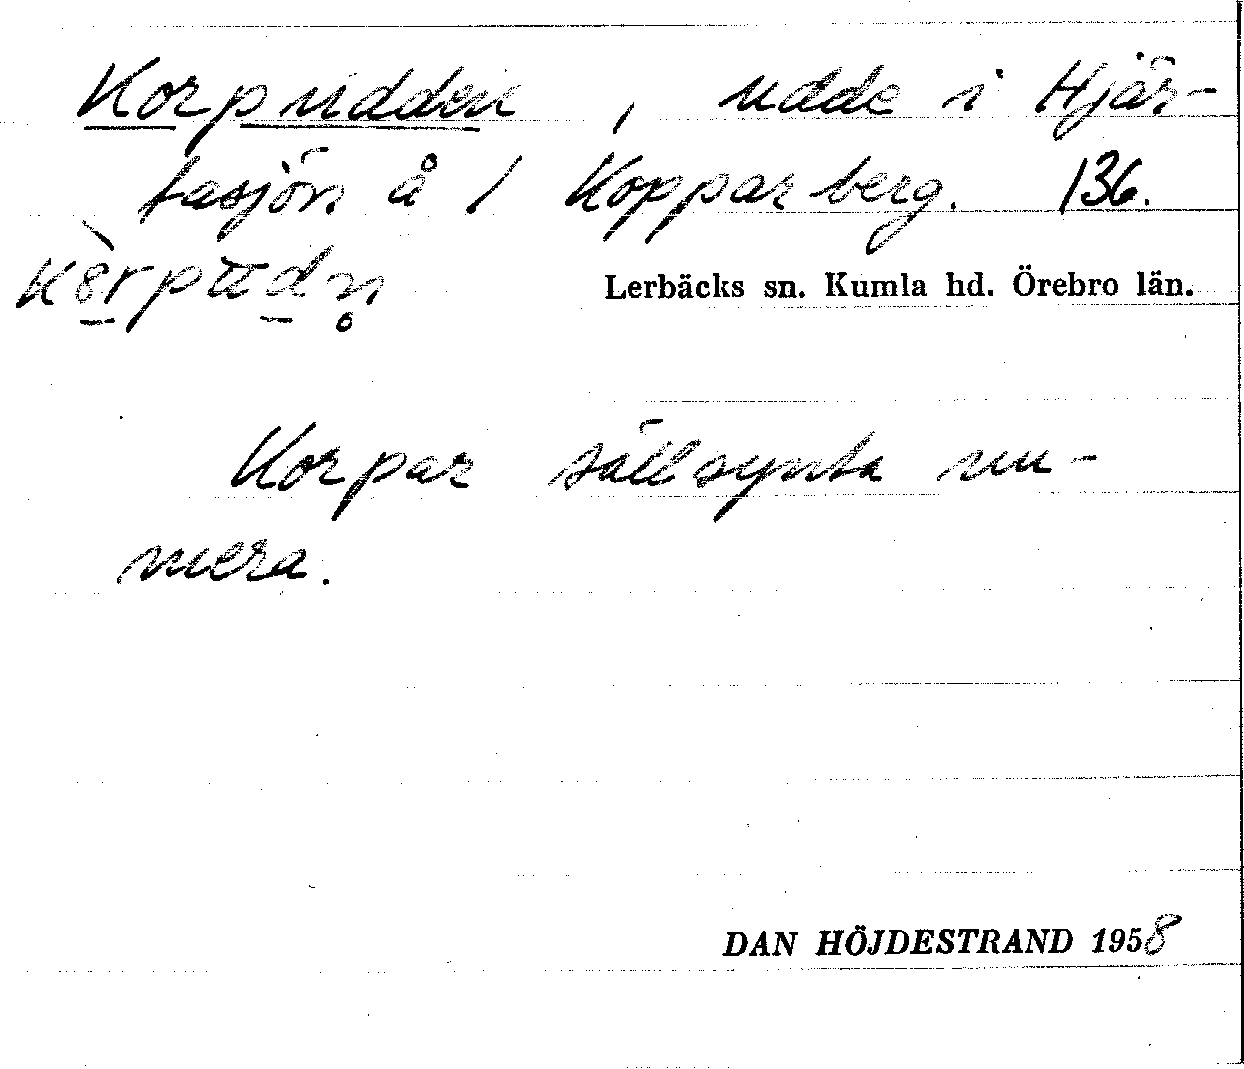 Korpudden, udde i Hjär-
tasjön å 1 Kopparberg. 136.
Lerbäcks sn. Kumla hd. Örebro län.
Korpar sällsynta nu-
mera.
DAN HÖJDESTRAND 1958